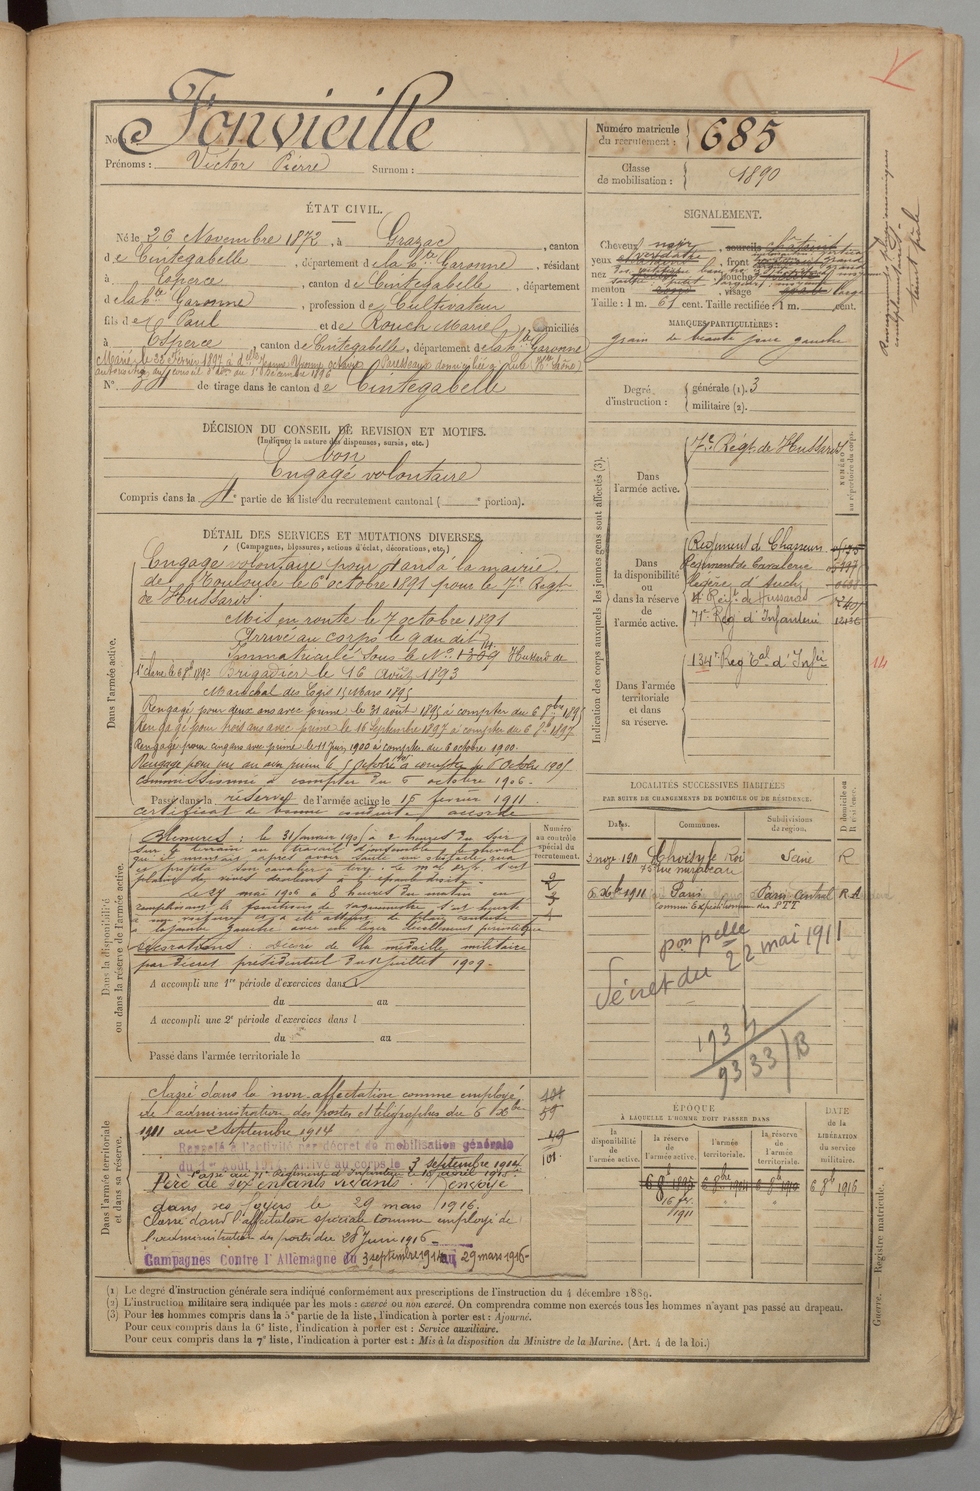 Nom : Fonvieille
Prénoms : Victor Pierre Surnom :
Numéro matricule du recrutement : 685
Classe de mobilisation : 1890
ÉTAT CIVIL.
Né le 26 Novembre 1872, à Grazac, canton
de Cintegabelle, département de la hte Garonne, résidant
à Esperce, canton de Cintegabelle, département
de la hte Garonne, profession de Cultivateur
fils de Paul et de Rouch Marie, domiciliés
à Esperce, canton de Cintegabelle, département de la hte Garonne
Marié le 22 Février 1897 à
N° de tirage dans le canton de Cintegabelle
SIGNALEMENT.
Cheveux noir, sourcils châtains
yeux, front
nez, bouche
menton, visage
Taille : 1 m. 61 cent. Taille rectifiée : 1 m. cent.
MARQUES PARTICULIÈRES :
grain de beauté joue gauche
Degré d'instruction : générale (1). 3
militaire (2).
DÉCISION DU CONSEIL DE REVISION ET MOTIFS.
(Indiquer la nature des dispenses, sursis, etc.)
bon
Engagé volontaire
Compris dans la 4e partie de la liste du recrutement cantonal ( e portion).
DÉTAIL DES SERVICES ET MUTATIONS DIVERSES.
(Campagnes, blessures, actions d'éclat, décorations, etc.)
Dans l'armée active.
Engagé volontaire pour 4 ans à la mairie
de Toulouse le 6 octobre 1891 pour le 7e Regt
de Hussards
Mis en route le 7 octobre 1891
Arrivé au corps le 9 du dit
Immatriculé sous le No 1309 Hussard de
1e classe le Brigadier le 16 Août 1893
Maréchal des Logis 15 Mars 1895
Rengagé pour deux ans avec prime le 31 août 1895 à compter du 6 8bre 1895
Rengagé pour trois ans avec prime le 16 Septembre 1897 à compter du 6 8bre 1897
Rengagé pour cinq ans avec prime le 11 Juin 1900 à compter du 6 octobre 1900.
Rengagé pour un an sans prime le 5 Octobre à compter du 6 Octobre 1905
Commissionné à compter du 6 octobre 1906.
Passé dans la réserve de l'armée active le 15 février 1911.
certificat de bonne conduite accordé
Dans la disponibilité ou dans la réserve de l'armée active.
Blessures : le 31 Janvier 1905 à 2 heures du soir
sur le terrain au travail d'ensemble le cheval
qu'il montait, après avoir sauté un obstacle, rua
et projeta son cavalier à terre. Le Mal des logis s'est
plaint de vives douleurs à l'épaule droite.
Le 27 mai 1906 à 8 heures du matin en
remplissant les fonctions de vaguemestre, s'est heurté
à une voiture et a été atteint de plaie contuse
à la jambe gauche avec un léger décollement périostique
Décorations : Décoré de la médaille militaire
par décret présidentiel du 12 juillet 1909.
A accompli une 1re période d'exercices dans
du au
A accompli une 2e période d'exercices dans l
du au
Passé dans l'armée territoriale le
Numéro au contrôle spécial du recrutement.
Indication des corps auxquels les jeunes gens sont affectés (3).
NUMÉRO au répertoire du corps.
Dans l'armée active. 7e Régt de Hussards
Dans la disponibilité ou dans la réserve de l'armée active.
Régiment de Chasseurs
Régiment de Cavalerie
légère d'Auch
Régt de Hussards
71e Reg d'Infanterie
Dans l'armée territoriale et dans sa réserve.
134e Reg Tal d'Infie
14
LOCALITÉS SUCCESSIVES HABITÉES
PAR SUITE DE CHANGEMENTS DE DOMICILE OU DE RÉSIDENCE.
Dates. Communes. Subdivisions de région. D domicile ou R résidence.
3 nov 1911 Choisy le Roi Seine R
rue mirabeau
6 Xbre 1911 Paris Paris Central R.A
commis Expéditionnaire des PTT
Décret du 22 mai 1911
1934
9333/B
Dans l'armée territoriale et dans sa réserve.
Classé dans la non affectation comme employé
de l'administration des postes et télégraphes du 6 Xbre
1911 au 2 Septembre 1914
Rappelé à l'activité par décret de mobilisation générale
du 1er août 1914 arrivé au corps le 3 septembre 1914
Passé au 71e Régiment d'Infanterie le 15 avril 1915
Père de six enfants vivants. Renvoyé
dans ses foyers le 29 mars 1916.
Classé dans l'affectation spéciale comme employé de
l'administration des postes du 28 Juin 1916
Campagnes Contre l'Allemagne du 3 septembre 1914 au 29 mars 1916
101
59
49
101.
ÉPOQUE
À LAQUELLE L'HOMME DOIT PASSER DANS
la disponibilité de l'armée active. la réserve de l'armée active. l'armée territoriale. la réserve de l'armée territoriale.
DATE de la LIBÉRATION du service militaire.
6 8bre 1895 6 8bre 1904 6 8bre 1910 6 8bre 1916
15 fév. 1911
(1) Le degré d'instruction générale sera indiqué conformément aux prescriptions de l'instruction du 4 décembre 1889.
(2) L'instruction militaire sera indiquée par les mots : exercé ou non exercé. On comprendra comme non exercés tous les hommes n'ayant pas passé au drapeau.
(3) Pour les hommes compris dans la 5e partie de la liste, l'indication à porter est : Ajourné.
Pour ceux compris dans la 6e liste, l'indication à porter est : Service auxiliaire.
Pour ceux compris dans la 7e liste, l'indication à porter est : Mis à la disposition du Ministre de la Marine. (Art. 4 de la loi.)
Guerre. — Registre matricule.
Renseignements physionomiques
complémentaires :
teint pâle